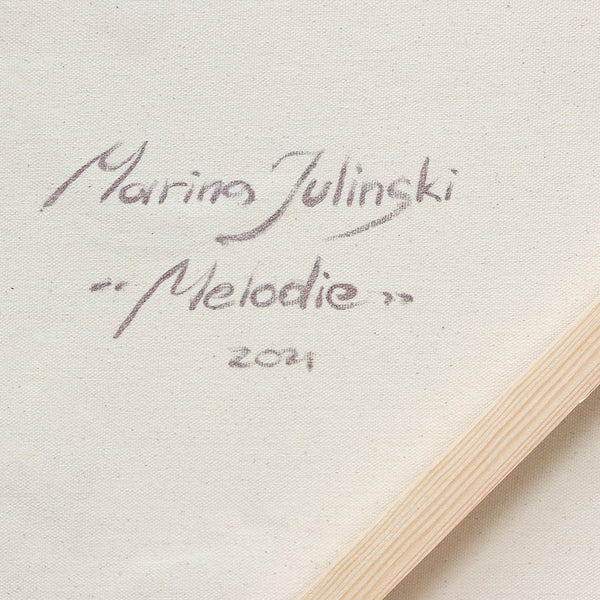 Marina Julinski
"Melodie"
2021